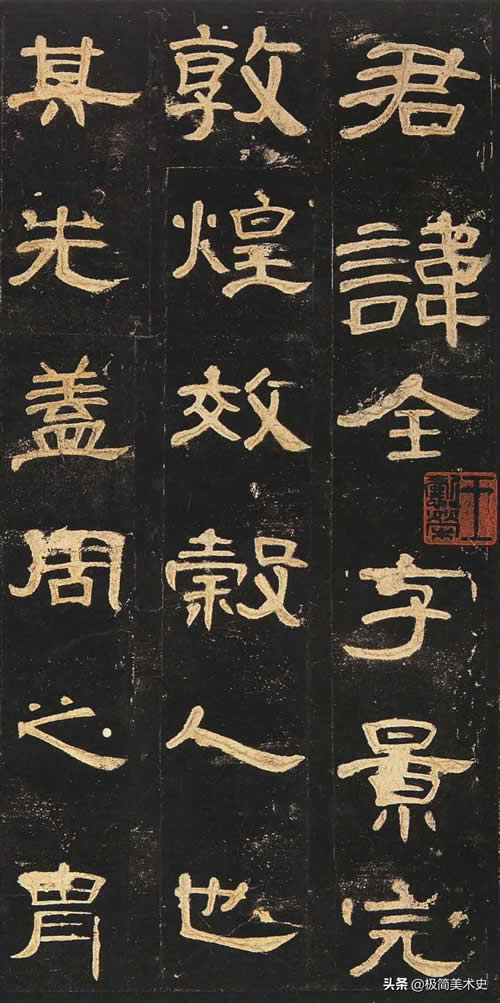 君諱全字景完
敦煌效穀人也
其先蓋周之胄
头条 @极简美术史